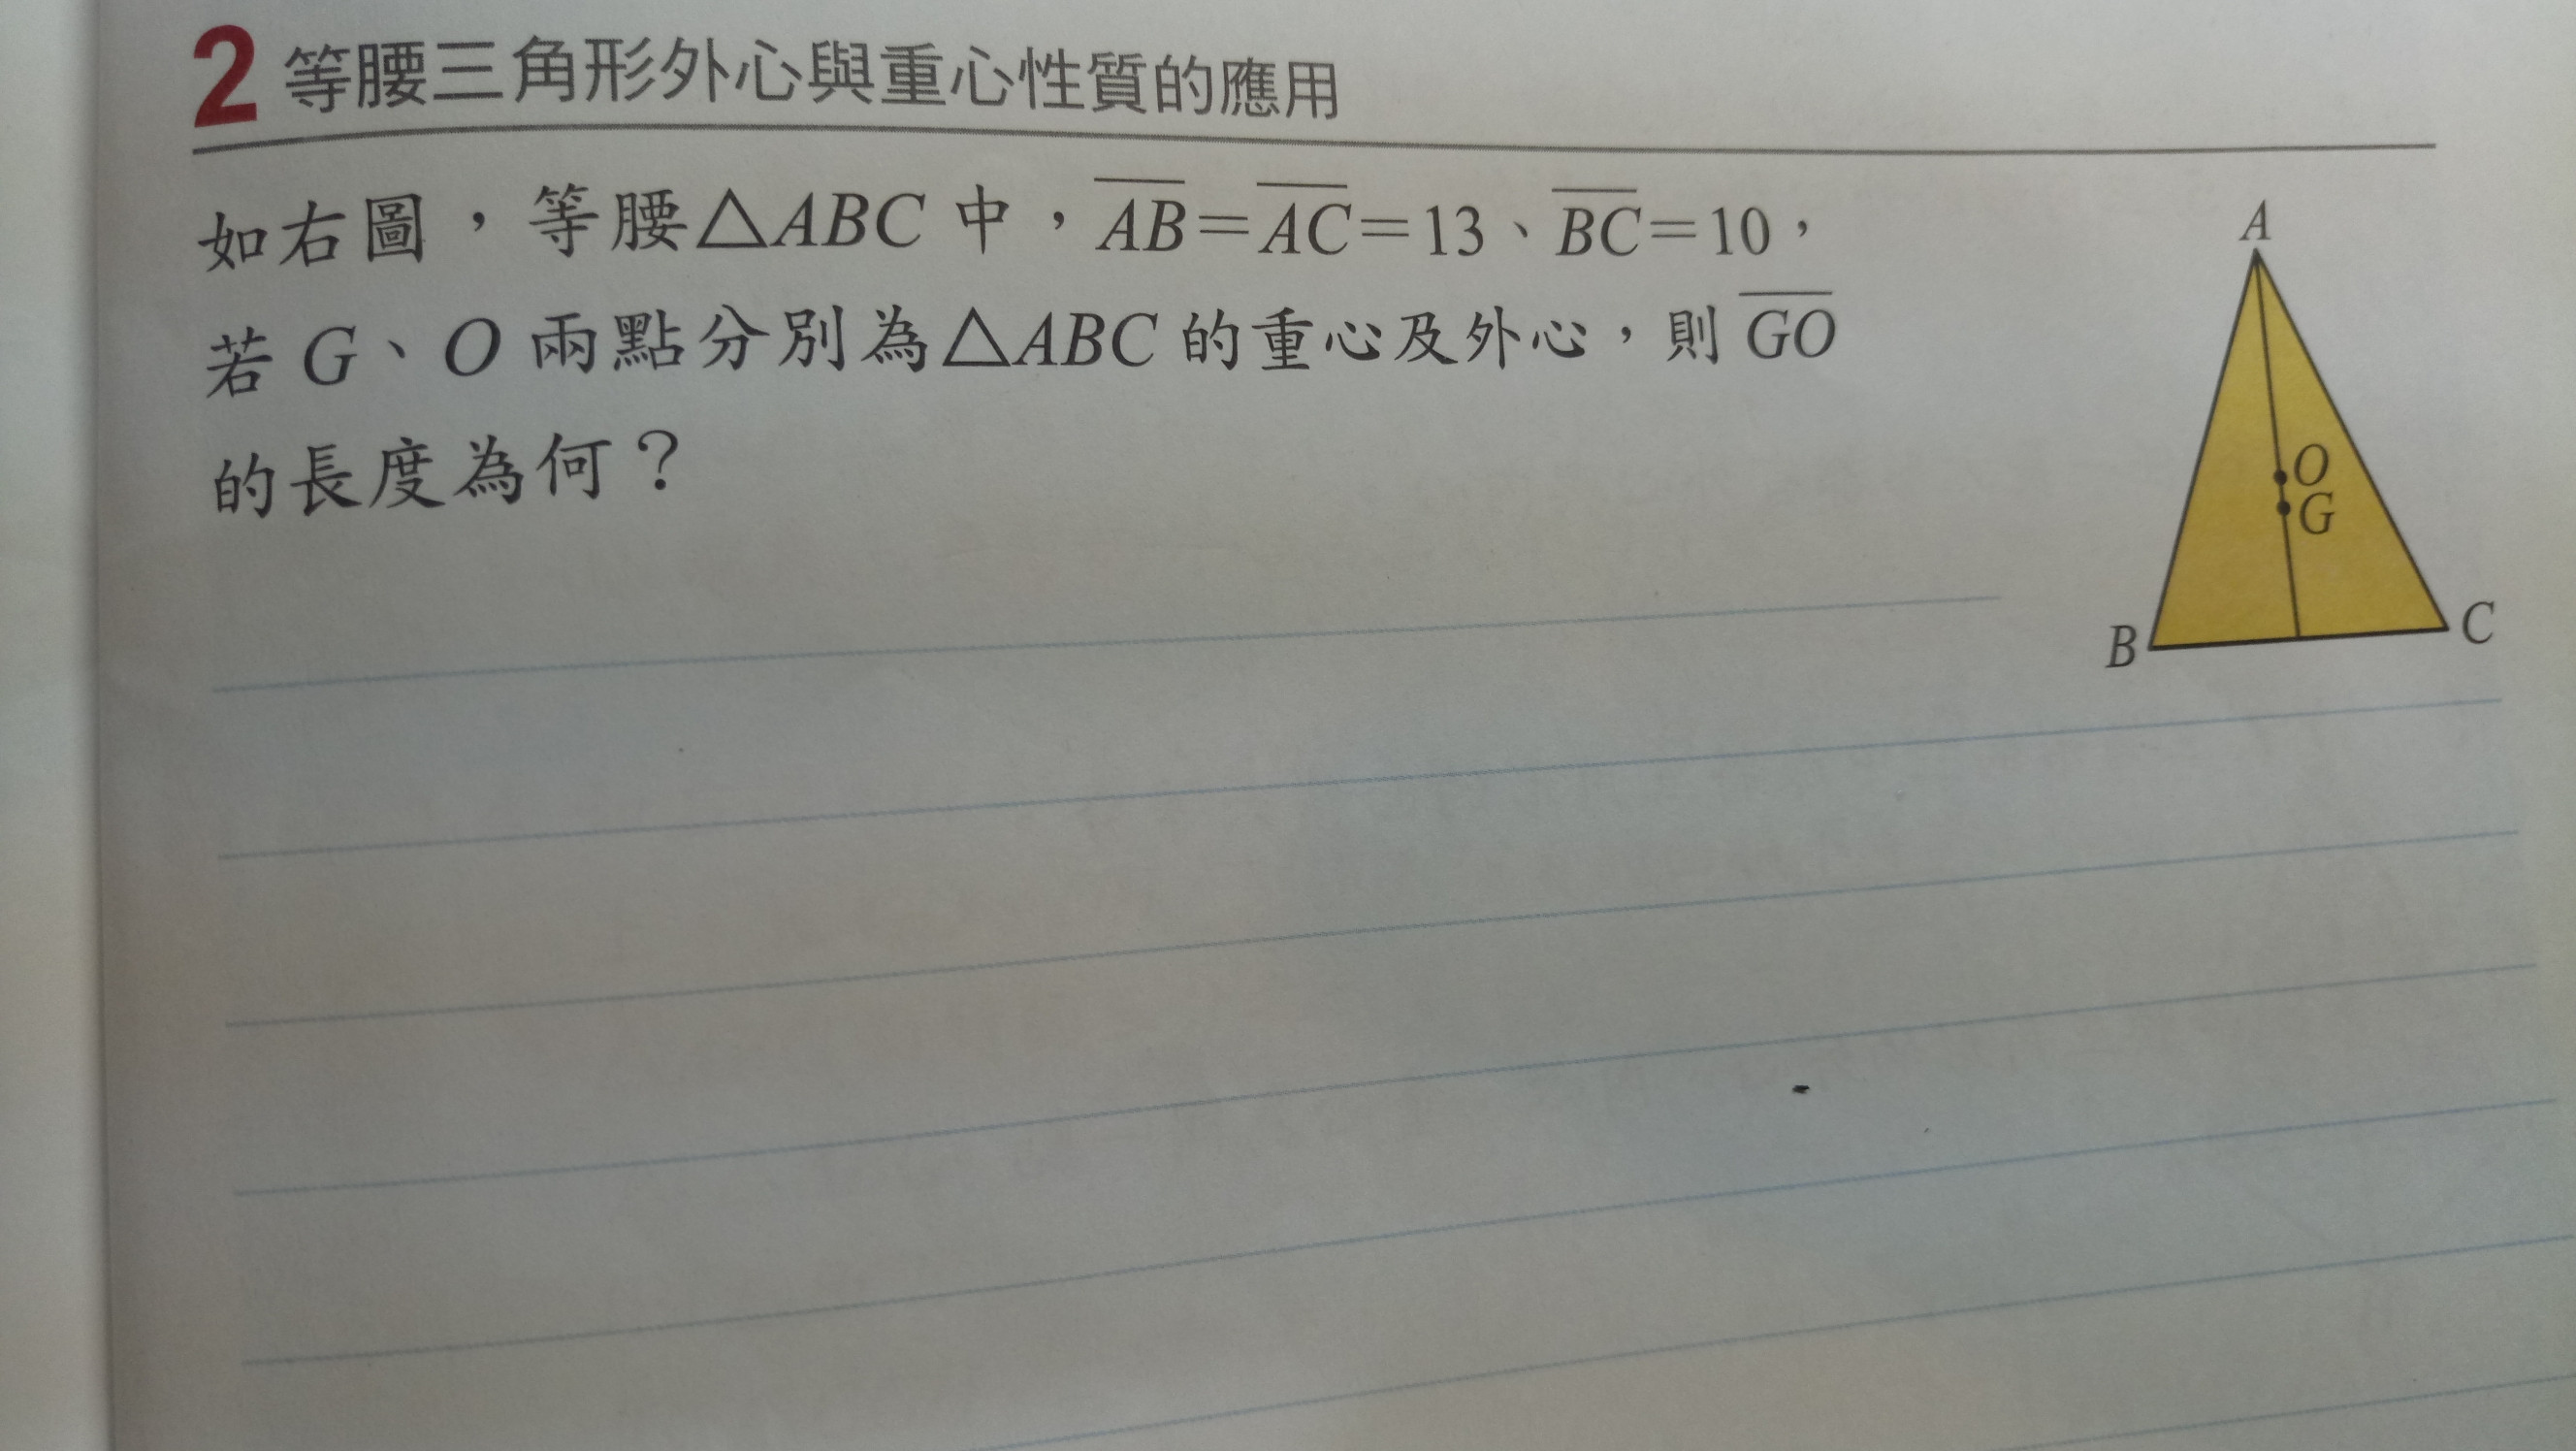 2 等腰三角形外心與重心性質的應用
如右圖，等腰△ABC 中，AB=AC=13、BC=10，
若 G、O 兩點分別為△ABC 的重心及外心，則 GO
的長度為何？
A
O
G
B
C